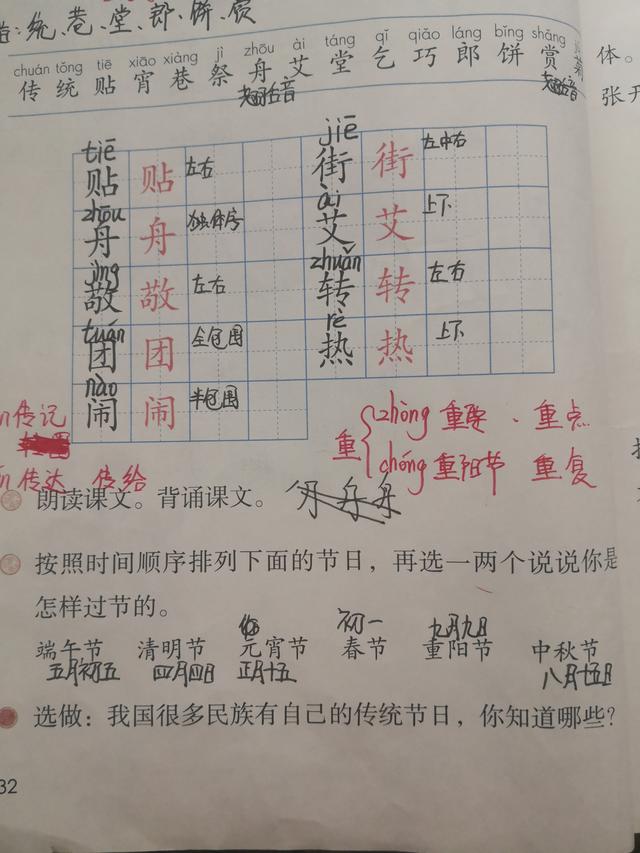 统、巷、堂、郎、饼、赏
chuán tǒng tiē xiāo xiàng jì zhōu ài táng qǐ qiǎo láng bǐng shǎng
传 统 贴 宵 巷 祭 舟 艾 堂 乞 巧 郎 饼 赏
体。
翘舌音 翘舌音
张开
tiē jiē
贴 贴 左右 街 街 左中右
zhōu ài
舟 舟 独体字 艾 艾 上下
jìng zhuǎn
敬 敬 左右 转 转 左右
tuán rè
团 团 全包围 热 热 上下
nào
闹 闹 半包围
传记
重 zhòng 重要、重点
chóng 重阳节 重复
传达 传给
朗读课文。背诵课文。
按照时间顺序排列下面的节日，再选一两个说说你是
怎样过节的。
初一 九月九日
端午节 清明节 元宵节 春节 重阳节 中秋节
五月初五 四月四日 正月十五 八月十五日
选做：我国很多民族有自己的传统节日，你知道哪些？
32